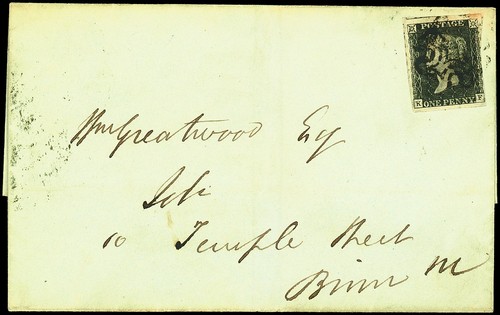 POSTAGE
K F
ONE PENNY
Wm Greatwood Esq
Sol.
10 Temple Street
Birm m